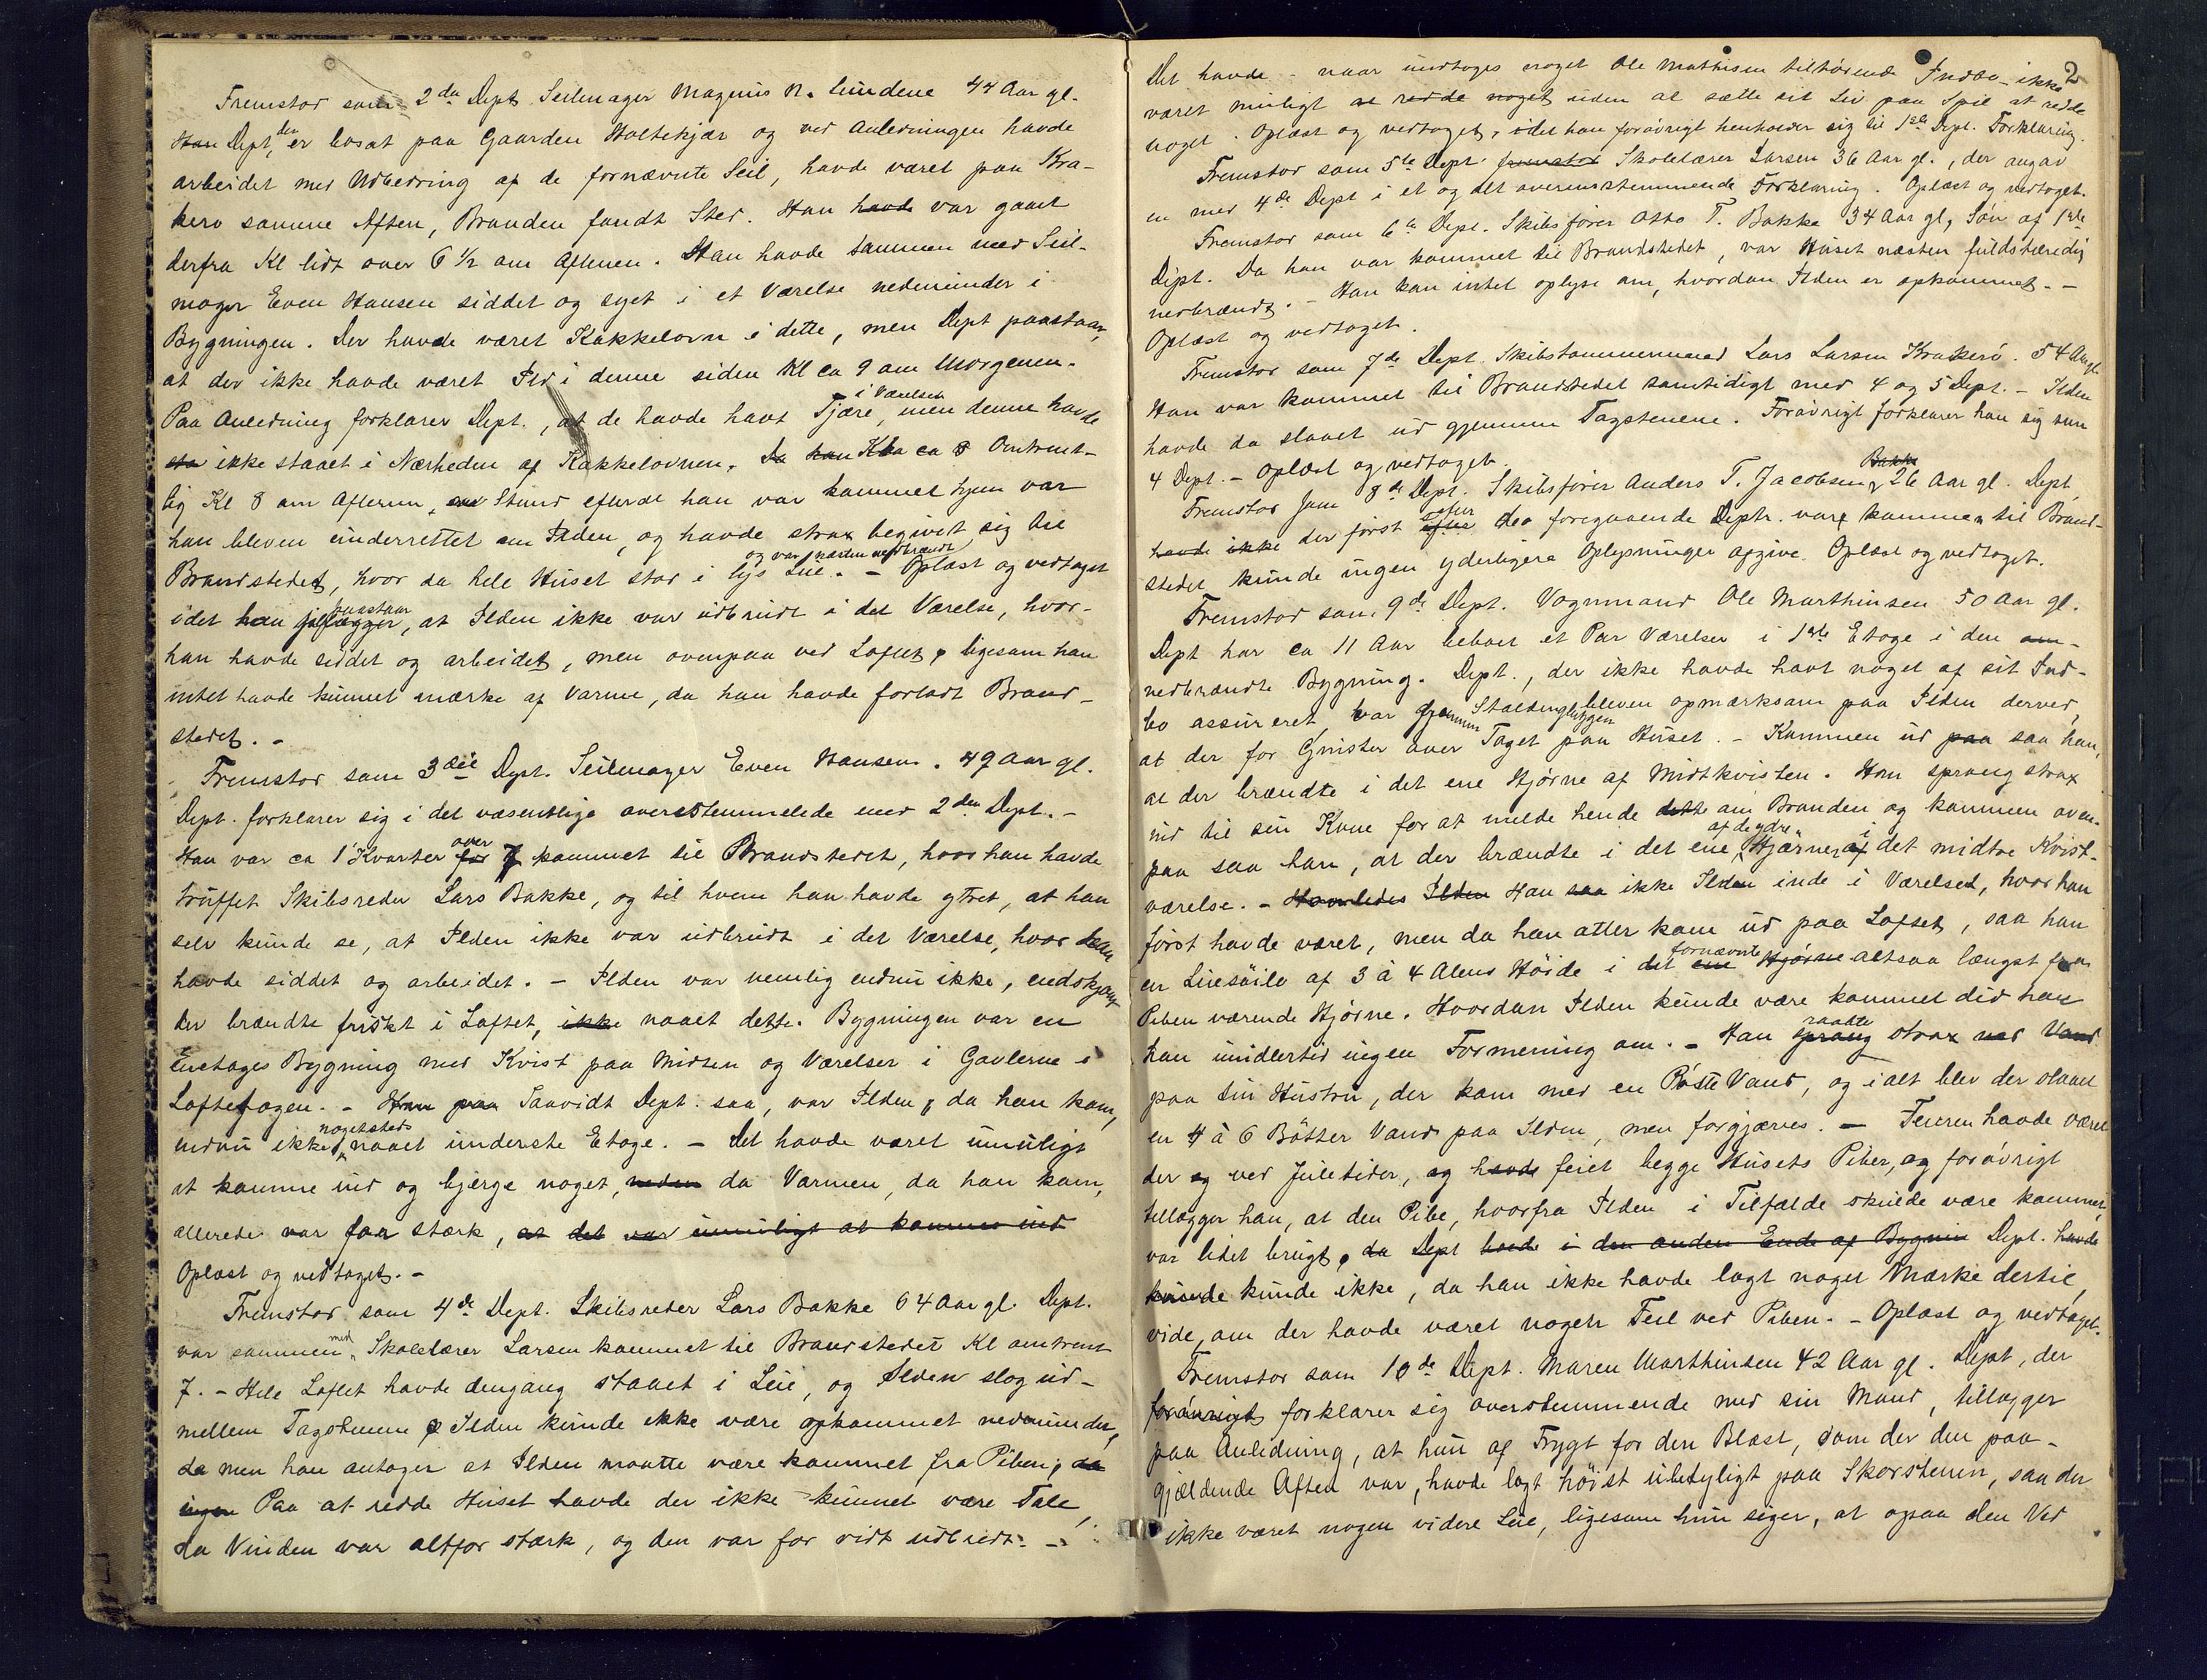 Fremstod som 2den Dept Seilmager Magnus N. Lundene 44 Aar gl.
Han Dept, der er bosat paa Gaarden Holtekjær og ved Anledningen havde
arbeidet med Udbedring af de fornævnte Seil, havde været paa Kra-
kerø samme Aften, Branden fandt Sted. Han havde var gaaet
derfra Kl lidt over 6 1/2 om Aftenen. Han havde sammen med Seil-
mager Even Hansen siddet og syet i et Værelse nedenunder i
Bygningen. Der havde været Kakkelovn i dette, men Dept paastaar,
at der ikke havde været Ild i denne siden Kl ca 9 om Morgenen.
Paa Anledning forklarer Dept., at de havde havt Tjære i Værelset, men denne havde
sta ikke staaet i Nærheden af Kakkelovnen. Da han Kl ca 8 Omtrent-
lig Kl 8 om Aftenen, en Stund efterat han var kommet hjem var
han bleven underrettet om Ilden, og havde strax begivet sig til
Brandstedet, hvor da hele Huset stod i lys Lue og var næsten nedbrændt. - Oplæst og vedtaget
idet han paastaar, at Ilden ikke var udbrudt i det Værelse, hvor-
han havde siddet og arbeidet, men ovenpaa ved Loftet, ligesom han
intet havde kunnet mærke af Varme, da han havde forladt Brand-
stedet. -
Fremstod som 3die Dept. Seilmager Even Hansen. 49 Aar gl.
Dept. forklarer sig i det væsentlige overstemmelede med 2den Dept. -
Han var ca 1 Kvarter for over 7 kommet til Brandstedet, hvor han havde
truffet Skibsreder Lars Bakke, og til hvem han havde ytret, at han
selv kunde se, at Ilden ikke var udbrudt i det Værelse, hvor han
havde siddet og arbeidet. - Ilden var nemlig endnu ikke, endskjønt
der brændte friskt i Loftet, ikke naaet dette. Bygningen var en
Enetages Bygning med Kvist paa Midten og Værelser i Gavlerne i
Loftetagen. - Han paa Saavidt Dept. saa, var Ilden, da han kom,
endnu ikke nogetsteds naaet underste Etage. - Det havde været umuligt
at komme ind og bjerge noget, da Varmen, da han kom,
allerede var for stærk, at det var umuligt at komme ind
Oplæst og vedtaget. -
Fremstod som 4de Dept. Skibsreder Lars Bakke 64 Aar gl. Dept.
var sammen med Skolelærer Larsen kommet til Brandstedet Kl omtrent
7. - Hele Loftet havde dengang staaet i Lue, og Ilden slog ud-
mellem Tagstenene. Ilden kunde ikke være opkommet nedenunder,
da men han antager at Ilden maatte være kommet fra Piben, da
ingen Paa at redde Huset havde der ikke kunnet være Tale,
da Vinden var altfor stærk, og den var for vidt udbredt. -
2
Det havde - naar undtages noget Ole Mathisen tilhørende Indbo - ikke
været muligt at redde noget uden at sætte sit Liv paa Spil at redde
noget. Oplæst og vedtaget, idet han forøvrigt henholder sig til 1ste Dept. Forklaring.
Fremstod som 5te Dept fremstod Skolelærer Larsen 36 Aar gl., der angav
en med 4de Dept i et og alt overensstemmende Forklaring. Oplæst og vedtaget.
Fremstod som 6te Dept. Skibsfører Otto T. Bakke 34 Aar gl, Søn af 1ste
Dept. Da han var kommet til Brandstedet, var Huset næsten fuldstændig
nedbrændt. - Han kan intet oplyse om, hvordan Ilden er opkommet. -
Oplæst og vedtaget.
Fremstod som 7de Dept. Skibstømmermand Lars Larsen Krakerø. 54 Aar gl
Han var kommet til Brandstedet samtidigt med 4 og 5 Dept. - Ilden
havde da slaaet ud gjennem Tagstenene. Forøvrigt forklarer han sig som
4 Dept. - Oplæst og vedtaget.
Fremstod som 8de Dept. Skibsfører Anders T. Jacobsen Bakke 26 Aar gl. Dept,
havde ikke der først efter de foregaaende Deptr. var kommen til Brand-
stedet kunde ingen yderligere Oplysninger afgive. Oplæst og vedtaget.
Fremstod som 9de Dept. Vognmand Ole Marthinsen 50 Aar gl.
Dept har ca 11 Aar beboet et Par Værelser i 1ste Etage i den om-
nedbrændte Bygning. Dept., der ikke havde havt noget af sit Ind-
bo assureret, var gjennem Staldinglyggen bleven opmærksom paa Ilden derved,
at der for Gnister over Taget paa Huset. - Kommen ud paa saa han,
at der brændte i det ene Hjørne af Midtkvisten. Han sprang strax
ind til sin Kone for at melde hende dette om Branden og kommen oven-
paa saa han, at der brændte i det ene af de ydre Hjørner af i det midtre Kvist-
værelse. - Hvorledes Ilden Han saa ikke Ilden inde i Værelset, hvor han
først havde været, men da han atter kom ud paa Loftet, saa han
en Luesøile af 3 à 4 Alens Høide i det ene fornævnte Hjørne altsaa længst fra
Piben værende Hjørne. Hvordan Ilden kunde være kommet did har
han imidlertid ingen Formening om. - Han sprang raabte strax ned Vand
paa sin Hustru, der kom med en Bøtte Vand, og ialt blev der slaaet
en 4 à 6 Bøtter Vand paa Ilden, men forgjæves. - Feieren havde været
der og ved Juletider, og havde feiet begge Husets Piber, og forøvrigt
tillægger han, at den Pibe, hvorfra Ilden i Tilfælde skulde være kommet,
var lidet brugt, da Dept boede i den anden Ende af Bygnin Dept. havde
kunde kunde ikke, da han ikke havde lagt noget Mærke dertil,
vide, om der havde været nogen Feil ved Piben. - Oplæst og vedtaget.
Fremstod som 10de Dept. Maren Marthinsen 42 Aar gl. Dept, der
forøvrigt forklarer sig overstemmende med sin Mand, tillægger
paa Anledning, at hun af Frygt for den Blæst, som der den paa-
gjældende Aften var, havde lagt høist ubetyligt paa Skorstenen, saa der
ikke været nogen videre Lue, ligesom hun siger, at ogsaa den Ved